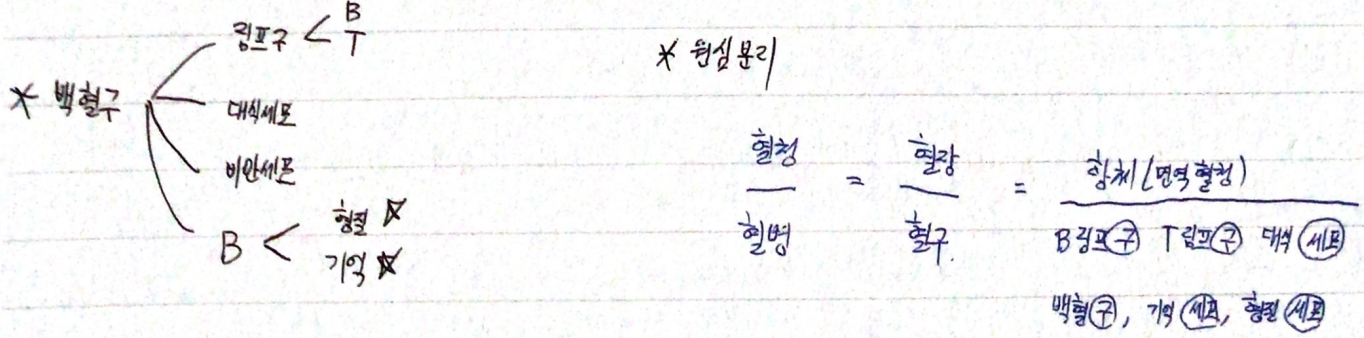 * 백혈구
림프구 < B
T
대식세포
비만세포
B < 형질 ☆
기억 ☆
* 원심분리
혈청 = 혈장 = 항체(면역혈청)
혈병 혈구. B림프구 T림프구 대식세포
백혈구, 기억세포, 형질세포